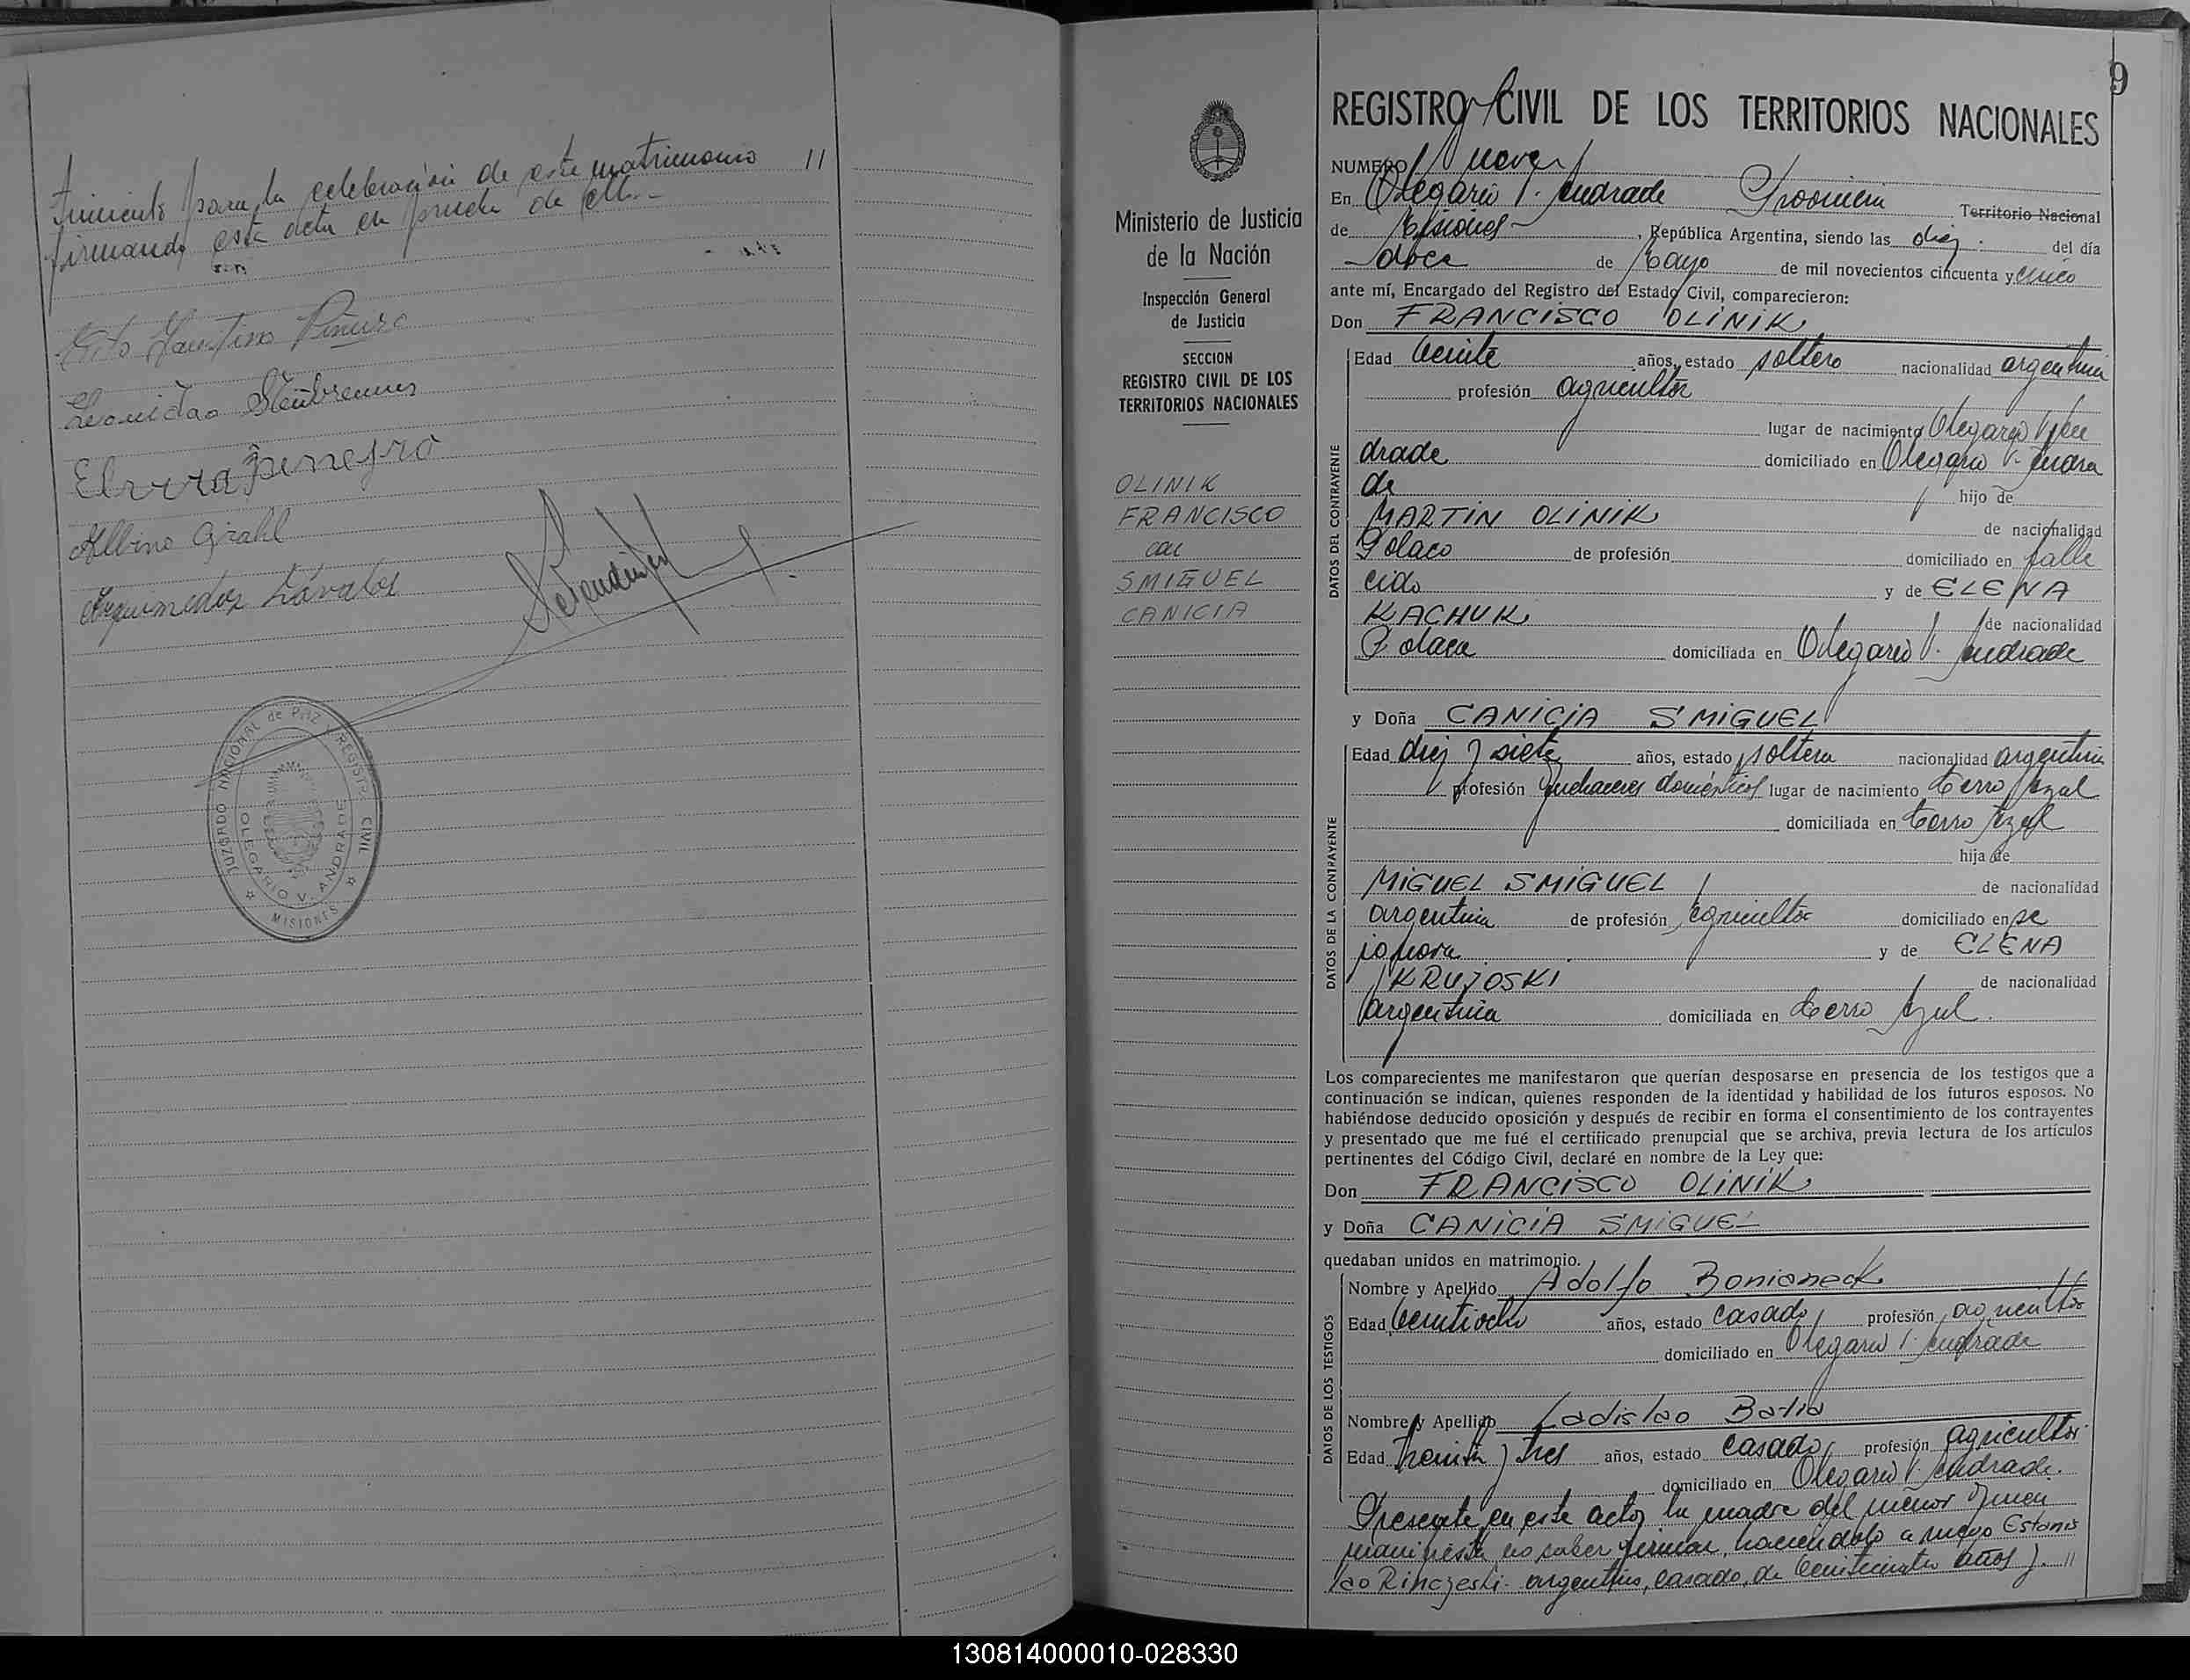 timiento para la celebración de este matrimonio //
firmando esta acta en prueba de ello.-
Tito Faustino
Leonidao
Elvira
Albino Grahl
Arquimedes Lávalos
JUZGADO NACIONAL de PAZ REGISTRO CIVIL
OLEGARIO V. ANDRADE
MISIONES
9
Ministerio de Justicia
de la Nación
Inspección General
de Justicia
SECCION
REGISTRO CIVIL DE LOS
TERRITORIOS NACIONALES
OLINIK
FRANCISCO
con
SMIGUEL
CANICIA
REGISTRO CIVIL DE LOS TERRITORIOS NACIONALES
NUMERO nueve
En Olegario V. Andrade Provincia Territorio Nacional
de Misiones , República Argentina, siendo las diez del día
doce de Mayo de mil novecientos cincuenta y cinco
ante mí, Encargado del Registro del Estado Civil, comparecieron:
Don FRANCISCO OLINIK
DATOS DEL CONTRAYENTE
Edad veinte años, estado soltero nacionalidad argentina
profesión agricultor
lugar de nacimiento Olegario V. An
drade domiciliado en Olegario V. Andra
de hijo de
MARTIN OLINIK de nacionalidad
Polaco de profesión domiciliado en falle
cido y de ELENA
KACHUK de nacionalidad
Polaca domiciliada en Olegario V. Andrade
y Doña CANICIA SMIGUEL
DATOS DE LA CONTRAYENTE
Edad diez y siete años, estado soltera nacionalidad argentina
profesión quehaceres domésticos lugar de nacimiento Cerro Azul
domiciliada en Cerro Azul
hija de
MIGUEL SMIGUEL de nacionalidad
argentina de profesión agricultor domiciliado en se
ignora y de ELENA
KRUJOSKI de nacionalidad
argentina domiciliada en Cerro Azul.
Los comparecientes me manifestaron que querían desposarse en presencia de los testigos que a
continuación se indican, quienes responden de la identidad y habilidad de los futuros esposos. No
habiéndose deducido oposición y después de recibir en forma el consentimiento de los contrayentes
y presentado que me fué el certificado prenupcial que se archiva, previa lectura de los artículos
pertinentes del Código Civil, declaré en nombre de la Ley que:
Don FRANCISCO OLINIK
y Doña CANICIA SMIGUEL
quedaban unidos en matrimonio.
DATOS DE LOS TESTIGOS
Nombre y Apellido Adolfo Bonioneck
Edad veintiocho años, estado casado profesión agricultor
domiciliado en Olegario V. Andrade
Nombre y Apellido Ladislao Batia
Edad treinta y tres años, estado casado, profesión agricultor
domiciliado en Olegario V. Andrade.
Presente en este acto, la madre del menor quien
manifiesta no saber firmar, haciendolo a ruego Estanis
lao Rinczeski. argentino, casado, de veinticuatro años). //
130814000010-028330